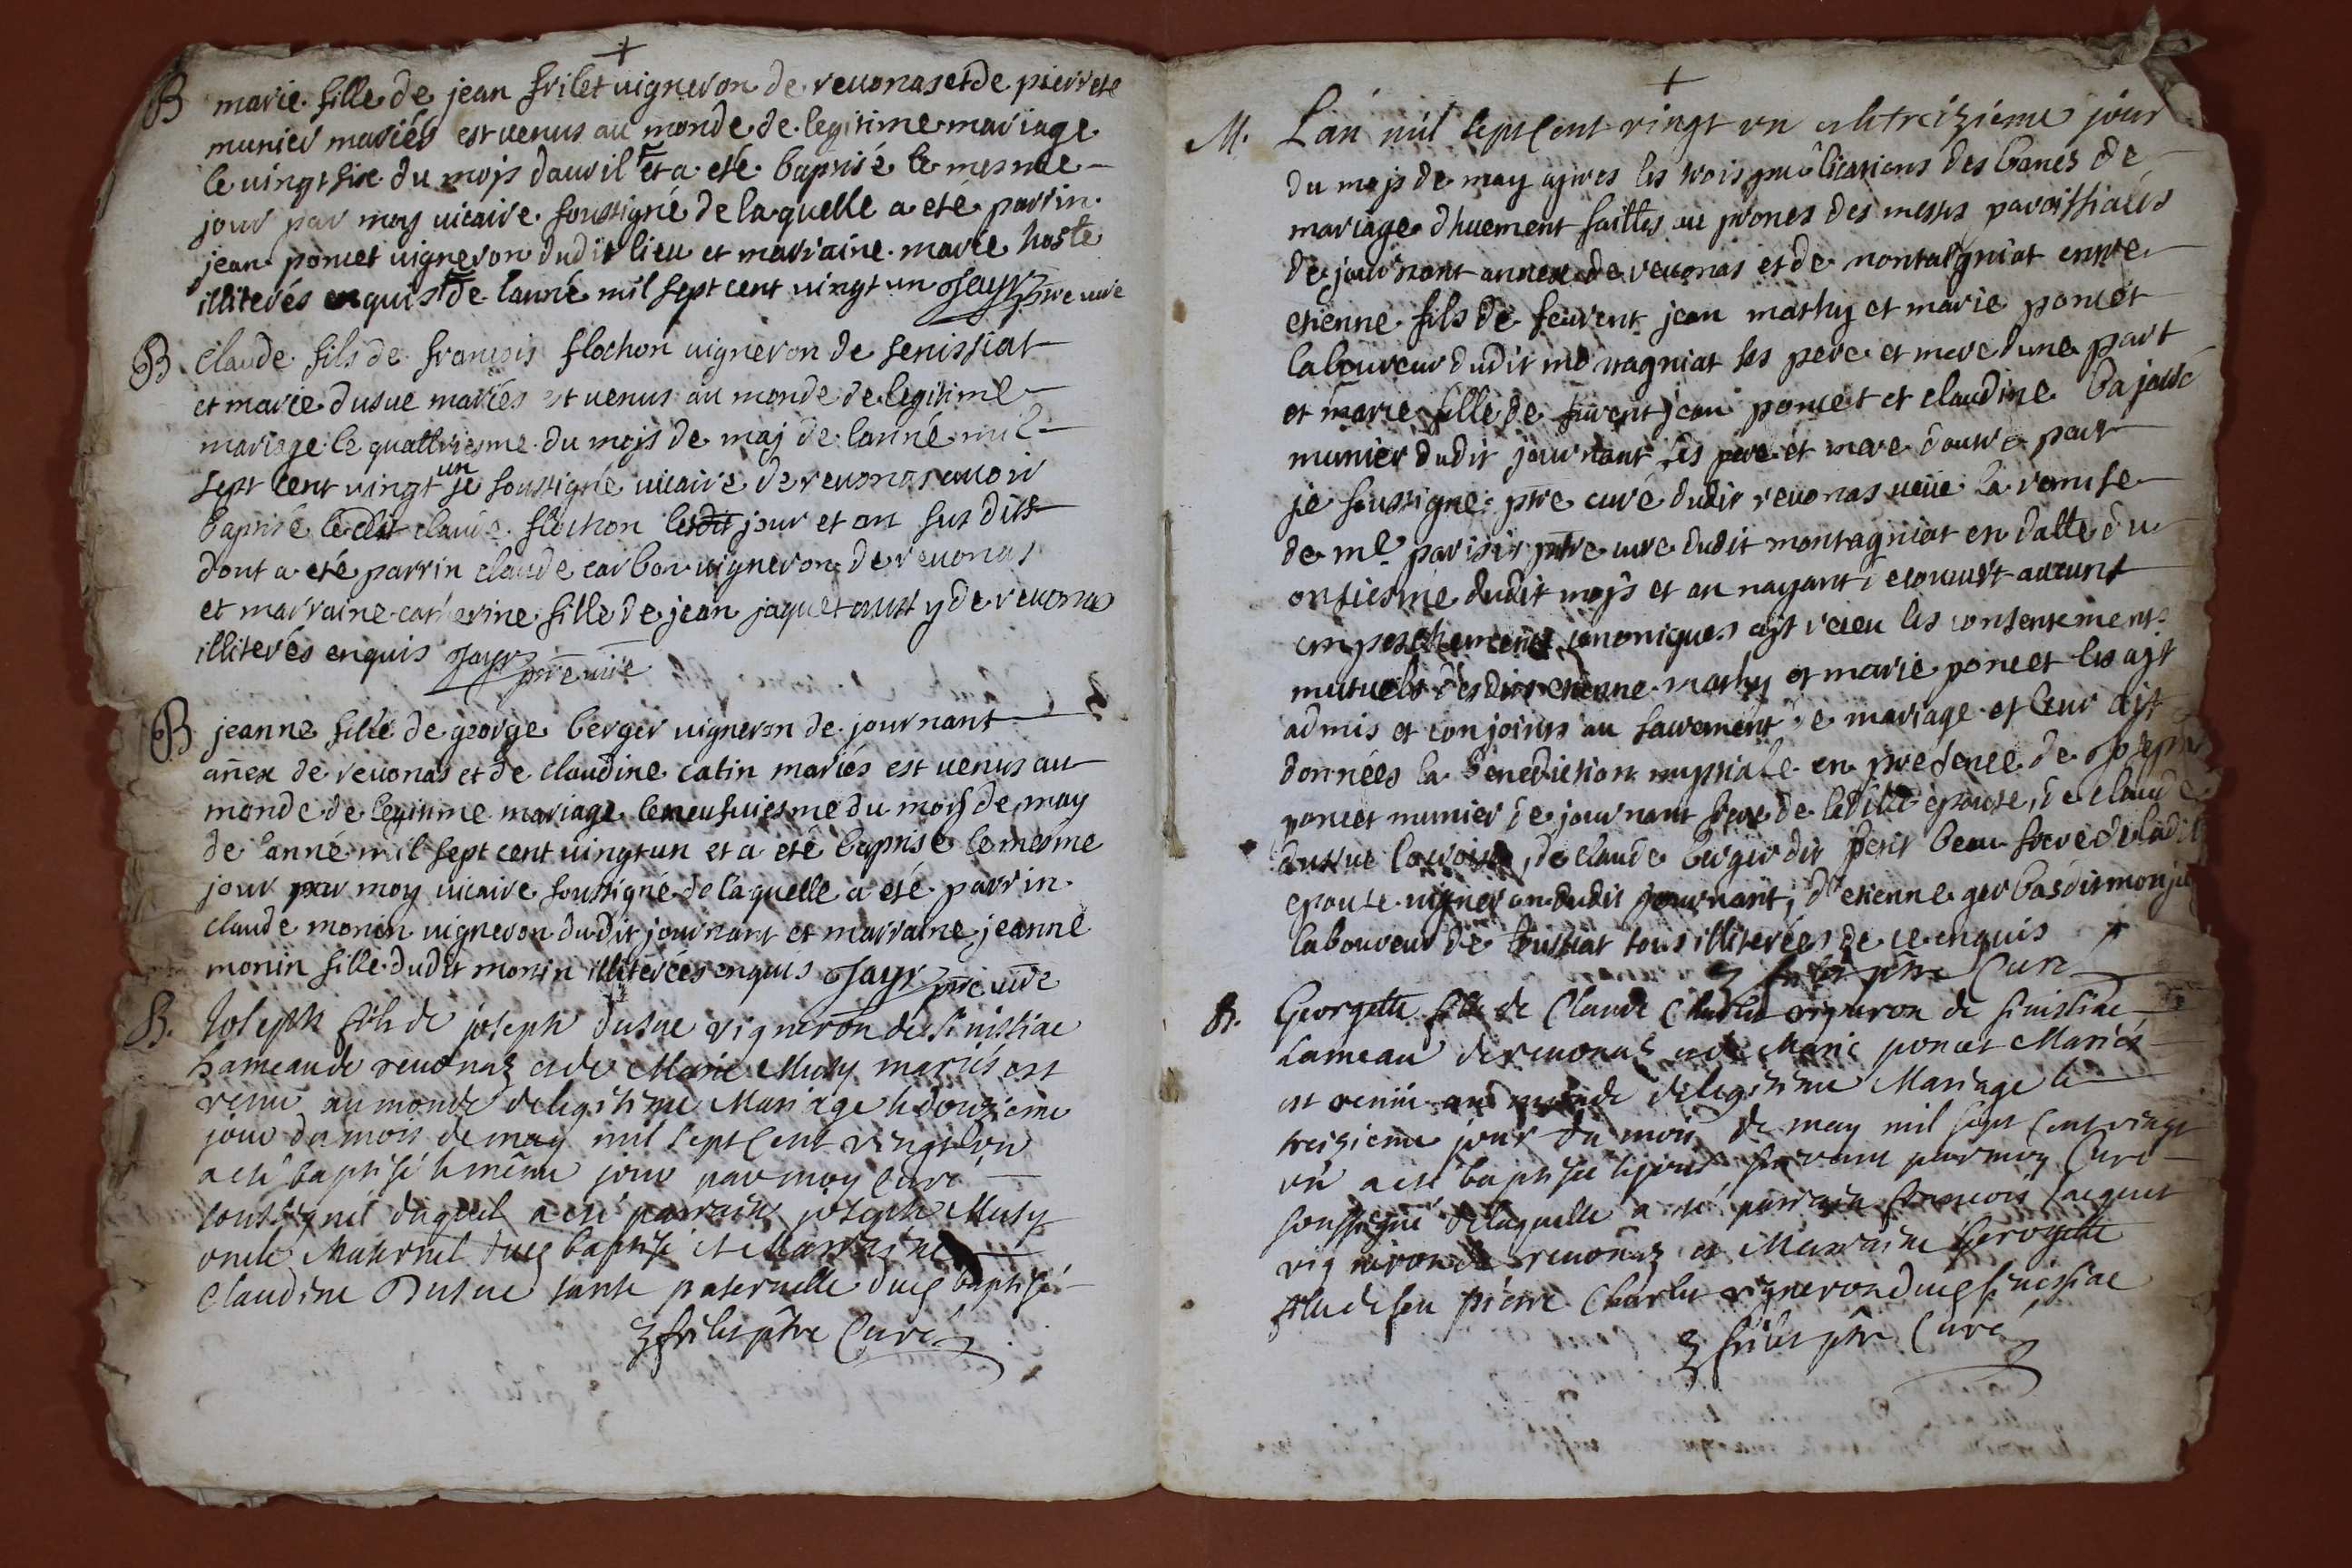 B marie fille de jean frilet vigneron de revonas et de pierrete
munier mariés est venus au monde de legitime mariage
le vingt sixe du mojs dauvril et a eté baptisé le mesme
jour par moy vicaire soussigné de laquelle a eté parrin
jean poncet vigneron dudit lieu et marraine marie hoste
illiterés enquis de lanné mil sept cent vingt un Jayr ptre vire
B Claude fils de francois flochon vigneron de senissiat
et marie dusue mariés est venus au monde de legitime
mariage le quattriesme du mojs de maj de lanné mil
sept cent vingt un je soussigné vicaire de revonas avoir
baptisé ledit claude flochon lesdit jour et an sus dits
dont a eté parrin claude carbon vigneron de revonas
et marraine catherine fille de jean jaquet aussy de revonas
illiterés enquis Jayr ptre vire
B jeanne fille de george berger vigneron de journant
anex de revonas et de claudine catin mariés est venus au
monde de legitime mariage le neufviesme du mojs de may
de lanné mil sept cent vingt un et a eté baptisé le mesme
jour par moy vicaire soussigné de laquelle a eté parrin
claude monin vigneron dudit journant et marraine jeanne
monin fille dudit monin illiterées enquis Jayr ptre vire
B. Joseph fils de joseph dusue vigneron de sinissiac
hameau de revonaz et de Marie Mathy mariés est
venu au monde de legitime Mariage le douzieme
jour du mois de may mil sept cent vingt un
a eté baptisé le même jour par moy Curé
soussigné duquel a eté parrain joseph Mathy
oncle Maternel duq baptisé et Marraine
Claudine Dusue tante paternelle duq baptisé
frilet ptre Curé
M. Lan mil sept cent vingt un et le treizieme jour
du mojs de may apres les trois publications des bancs de
mariage dhuement faittes au prones des messes paroissiales
de journant annexe de revonas et de montagniat entre
etienne fils de feuvent jean mathy et marie poncet
laboureur dudit montagniat ses pere et mere dune part
et marie fille de feuvent jean poncet et claudine
munier dudit journant ses pere et mere dautre part
je soussigne ptre curé dudit revonas veüe la remise
de mr. parisis ptre curé dudit montagniat en datte du
onsiesme dudit mojs et an nayant decouvert aucunt
empeschement canoniques ajt receu les consentements
mutuels desdits etienne mathy et marie poncet les ajt
admis et conjoints au sacrement de mariage et leur ajt
données la benediction nuptiale en presence de Joseph
poncet munier de journant frere de ladite epouse, de claude
dussue, de claude berger dit petit beau frere de ladit
epouse vigneron dudit journant, d'etienne gerbas dit
laboureur de tous illiterées de ce enquis
frilet ptre Curé
B. Georgette fille de Claude Charlet vigneron de sinissiac
hameau de revonaz et de Marie poncet Mariés
est venüe au monde de legitime Mariage le
treizieme jour du mois de may mil sept cent vingt
un a eté baptisée le jour suivant par moy Curé
soussigné de laquelle a eté parrain francois Jacquet
vigneron de revonaz et Marraine Georgette
fille de feu pierre Charlet vigneron duq sinissiac
frilet ptre Curé